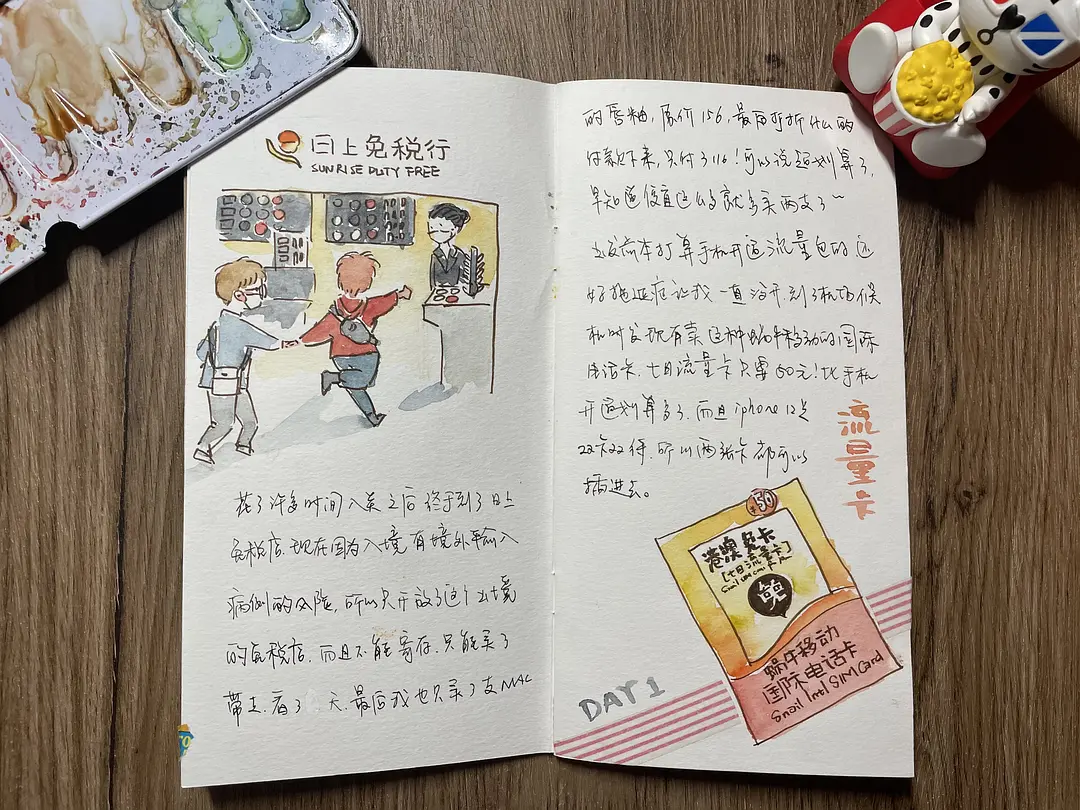 日上免税行
SUNRISE DUTY FREE
花了许多时间入关之后终于到了日上
免税店.现在因为入境有境外输入
病例的风险,所以只开放了这个出境
的免税店.而且不能寄存.只能买了
带走.看了 天.最后我也只买了支MAC
的唇釉,原价156,最后打折什么的
付款下来,只付了116!可以说超划算了,
早知道便宜这么多就多买两支了~
出发前本打算手机开通流量包的还
好拖延症让我一直没开.到了机场候
机时发现有卖这种蜗牛移动的国际
电话卡.七日流量卡只要50元!比手机
开通划算多了.而且iphone 12是
双卡双待.所以两张卡都可以
插进去。
流量卡
¥50
港澳兔卡
[七日流量卡]
兔
蜗牛移动
国际电话卡
Snail Intl SIM Card
DAY 1